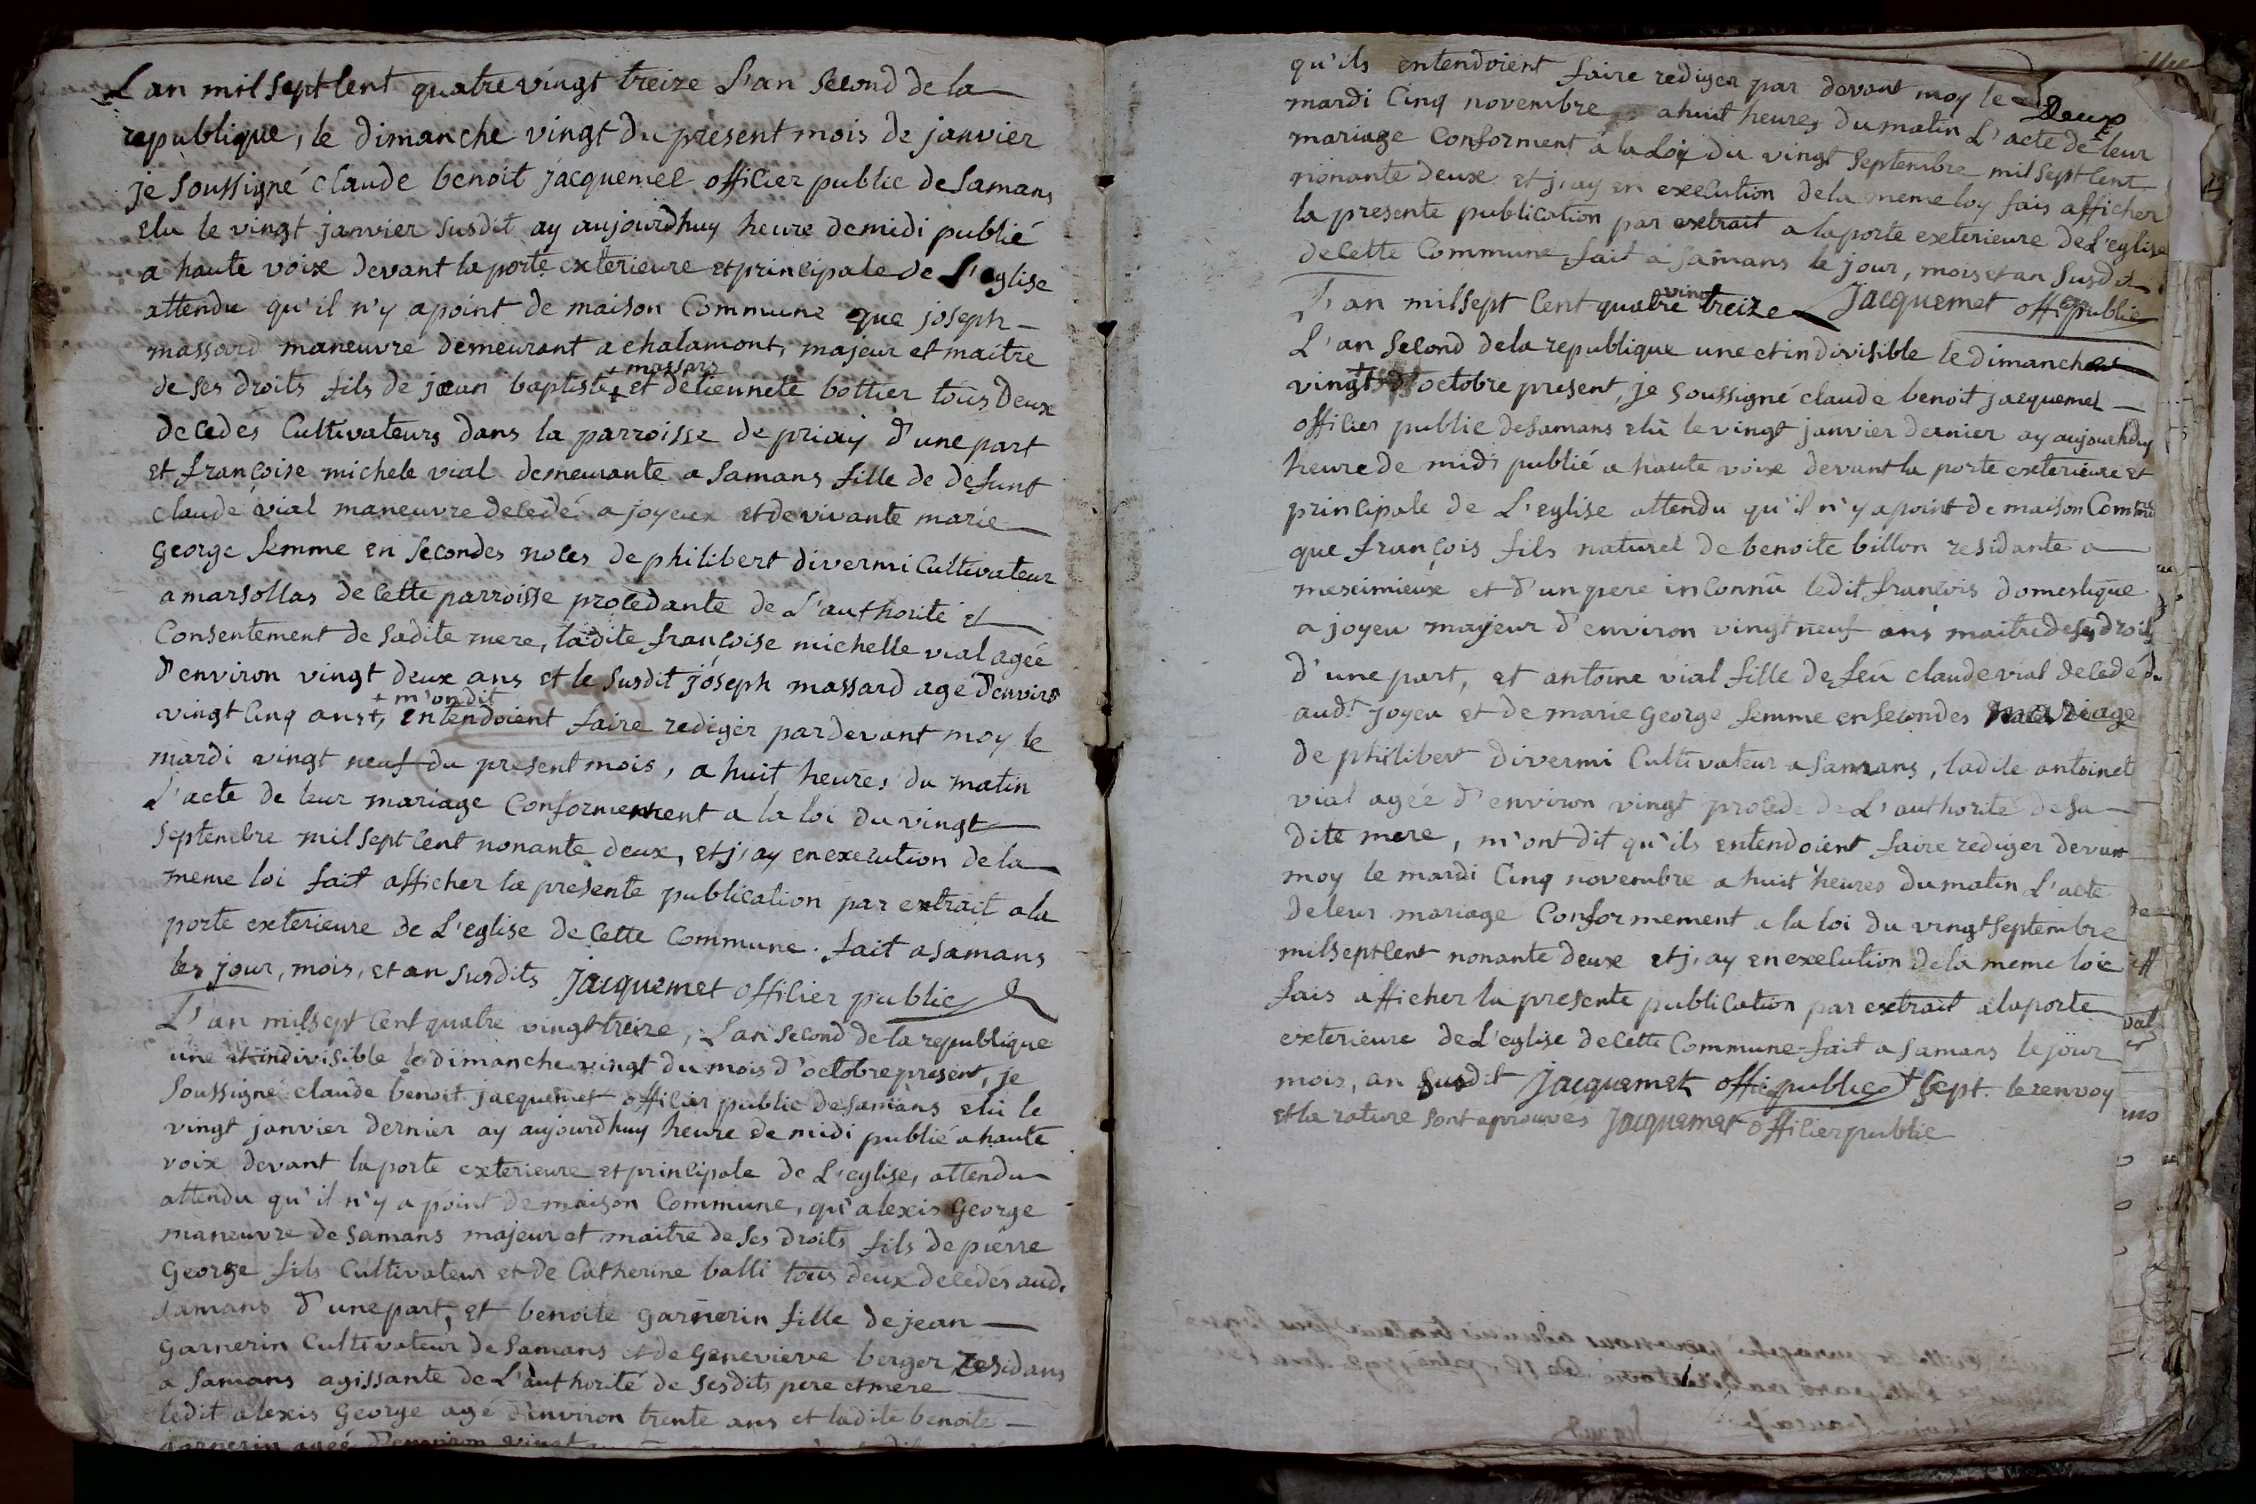 L'an mil sept Cent quatre vingt treize L'an Second de la
republique, le dimanche vingt du present mois de janvier
je Soussigné claude benoit jacquemet officier public de Samans
elu le vingt janvier susdit ay aujourdhuy heure de midi publié
a haute voix devant la porte exterieure et principale de L'eglise
attendu qu'il n'y a point de maison Commune que joseph
massard maneuvre demeurant a chalamont, majeur et maitre
+ massard
de ses droits fils de jean baptiste + et de tiennete bottier tous deux
decedés Cultivateurs dans la parroisse de priay d'une part
et françoise michele vial demeurante a Samans fille de defunt
claude vial maneuvre decedé a joyeux et de vivante marie
george femme en secondes noces de philibert divermi Cultivateur
a marsollas de Cette parroisse procedante de L'authorité et
Consentement de sadite mere, ladite françoise michelle vial agée
d'environ vingt deux ans et le Susdit joseph massard agé d'environ
+ m'on dit
vingt Cinq ans +, entendoient faire rediger pardevant moy le
mardi vingt neuf du present mois, a huit heures du matin
L'acte de leur mariage Conformement a la loi du vingt
Septembre mil sept Cent nonante deux, et j'ay en execution de la
meme loi fait afficher la presente publication par extrait a la
porte exterieure de L'eglise de Cette Commune. fait a Samans
les jour, mois, et an susdits jacquemet officier public
L'an mil sept Cent quatre vingt treize, L'an second de la republique
une et indivisible le dimanche vingt du mois d'octobre present, je
Soussigné claude benoit jacquemet officier public de Samans elu le
vingt janvier dernier ay aujourdhuy heure de midi publié a haute
voix devant la porte exterieure et principale de L'eglise, attendu
attendu qu'il n'y a point de maison Commune, qu'alexis George
maneuvre de Samans majeur et maitre de ses droits fils de pierre
George fils Cultivateur et de Catherine balli tous deux decedés aud.
Samans d'une part, et benoite garnerin fille de jean
garnerin Cultivateur de Samans et de Genevieve berger residans
a Samans agissante de L'authorité de sesdits pere et mere
ledit alexis George agé d'environ trente ans et ladite benoite
garnerin agée d'environ vingt
qu'ils entendoient faire rediger par devant moy le
Deux
mardi Cinq novembre a huit heures du matin L'acte de leur
mariage Conforment a la Loy du vingt Septembre mil sept Cent
nonante deux et j'ay en execution de la meme loy fais afficher
la presente publication par extrait a la porte exterieure de L'eglise
de Cette Commune fait a Samans le jour, mois et an Susdit
vingt
L'an mil sept Cent quatre treize Jacquemet offier public
L'an Second de la republique une et indivisible le dimanche
vingt + d'octobre present, je Soussigné claude benoit jacquemet
officier public de Samans elû le vingt janvier dernier ay aujourdhuy
heure de midi publié a haute voix devant la porte exterieure et
principale de L'eglise attendu qu'il n'y a point de maison Commu
que françois fils naturel de benoite billon residante a
meximieux et d'un pere inconnû ledit françois domestique
a joyeu majeur d'environ vingt neuf ans maitre de ses droits
d'une part, et antoine vial fille de feu claude vial decedé du
aud.t joyeu et de marie George femme en secondes mariage
de philibert divermi Cultivateur a Samans, ladite antoinet
vial agée d'environ vingt procede de L'authorité de sa
dite mere, m'ont dit qu'ils entendoient faire rediger devan
moy le mardi Cinq novembre a huit heures du matin L'acte
de leur mariage Conformement a la loi du vingt Septembre
mil sept Cent nonante deux et j'ay en execution de la meme loi
fais afficher la presente publication par extrait a la porte
exterieure de L'eglise de Cette Commune = fait a Samans le jour
mois, an susdit jacquemet offier public + Sept. le renvoy
et la rature sont aprouvés jacquemet officier public